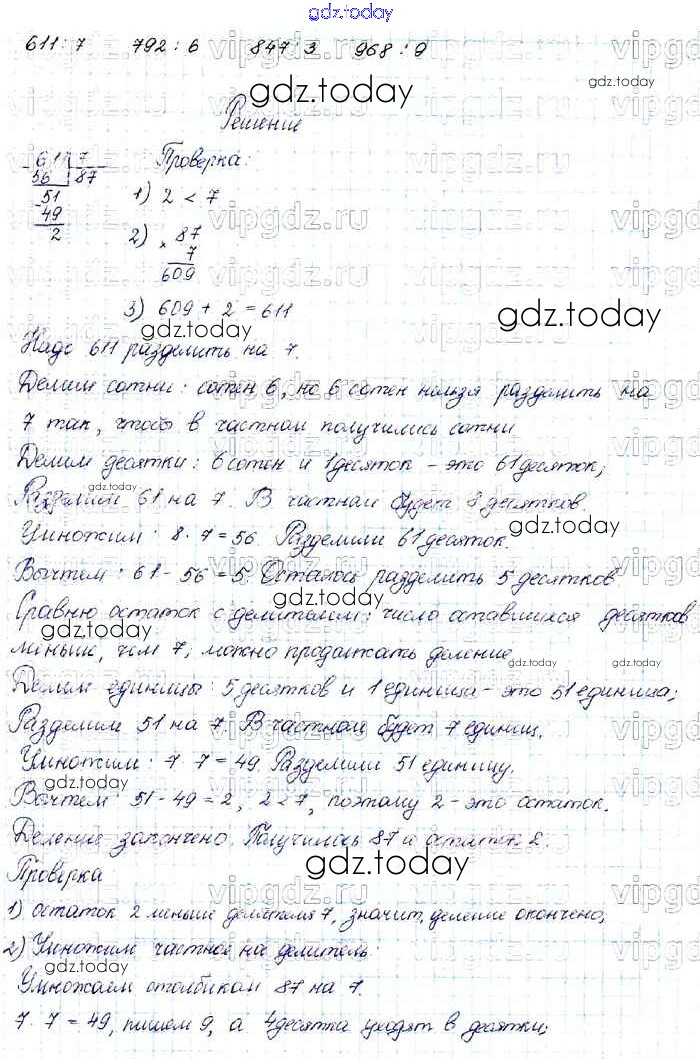 gdz.today
611 : 7 792 : 6 847 : 3 968 : 9
Решение
611 | 7
56 87
51
49
2
Проверка:
1) 2 < 7
2) × 87
7
609
3) 609 + 2 = 611
Надо 611 разделить на 7.
Делим сотни: сотен 6, но 6 сотен нельзя разделить на
7 так, чтобы в частном получились сотни
Делим десятки: 6 сотен и 1 десяток - это 61 десяток;
Разделим 61 на 7. В частном будет 8 десятков.
Умножим: 8 · 7 = 56. Разделили 61 десяток.
Вычтем: 61 - 56 = 5. Осталось разделить 5 десятков
Сравню остаток с делителем: число оставшихся десятков
меньше, чем 7; можно продолжать деление
Делим единицы: 5 десятков и 1 единица - это 51 единица;
Разделим 51 на 7. В частном будет 7 единиц.
Умножим: 7 · 7 = 49. Разделили 51 единицу.
Вычтем: 51 - 49 = 2, 2 < 7, поэтому 2 - это остаток.
Деление закончено. Получилось 87 и остаток 2.
Проверка
1) остаток 2 меньше делителя 7, значит, деление окончено;
2) Умножим частное на делитель:
Умножаем столбиком 87 на 7.
7 · 7 = 49, пишем 9, а 4 десятка уходят в десятки;